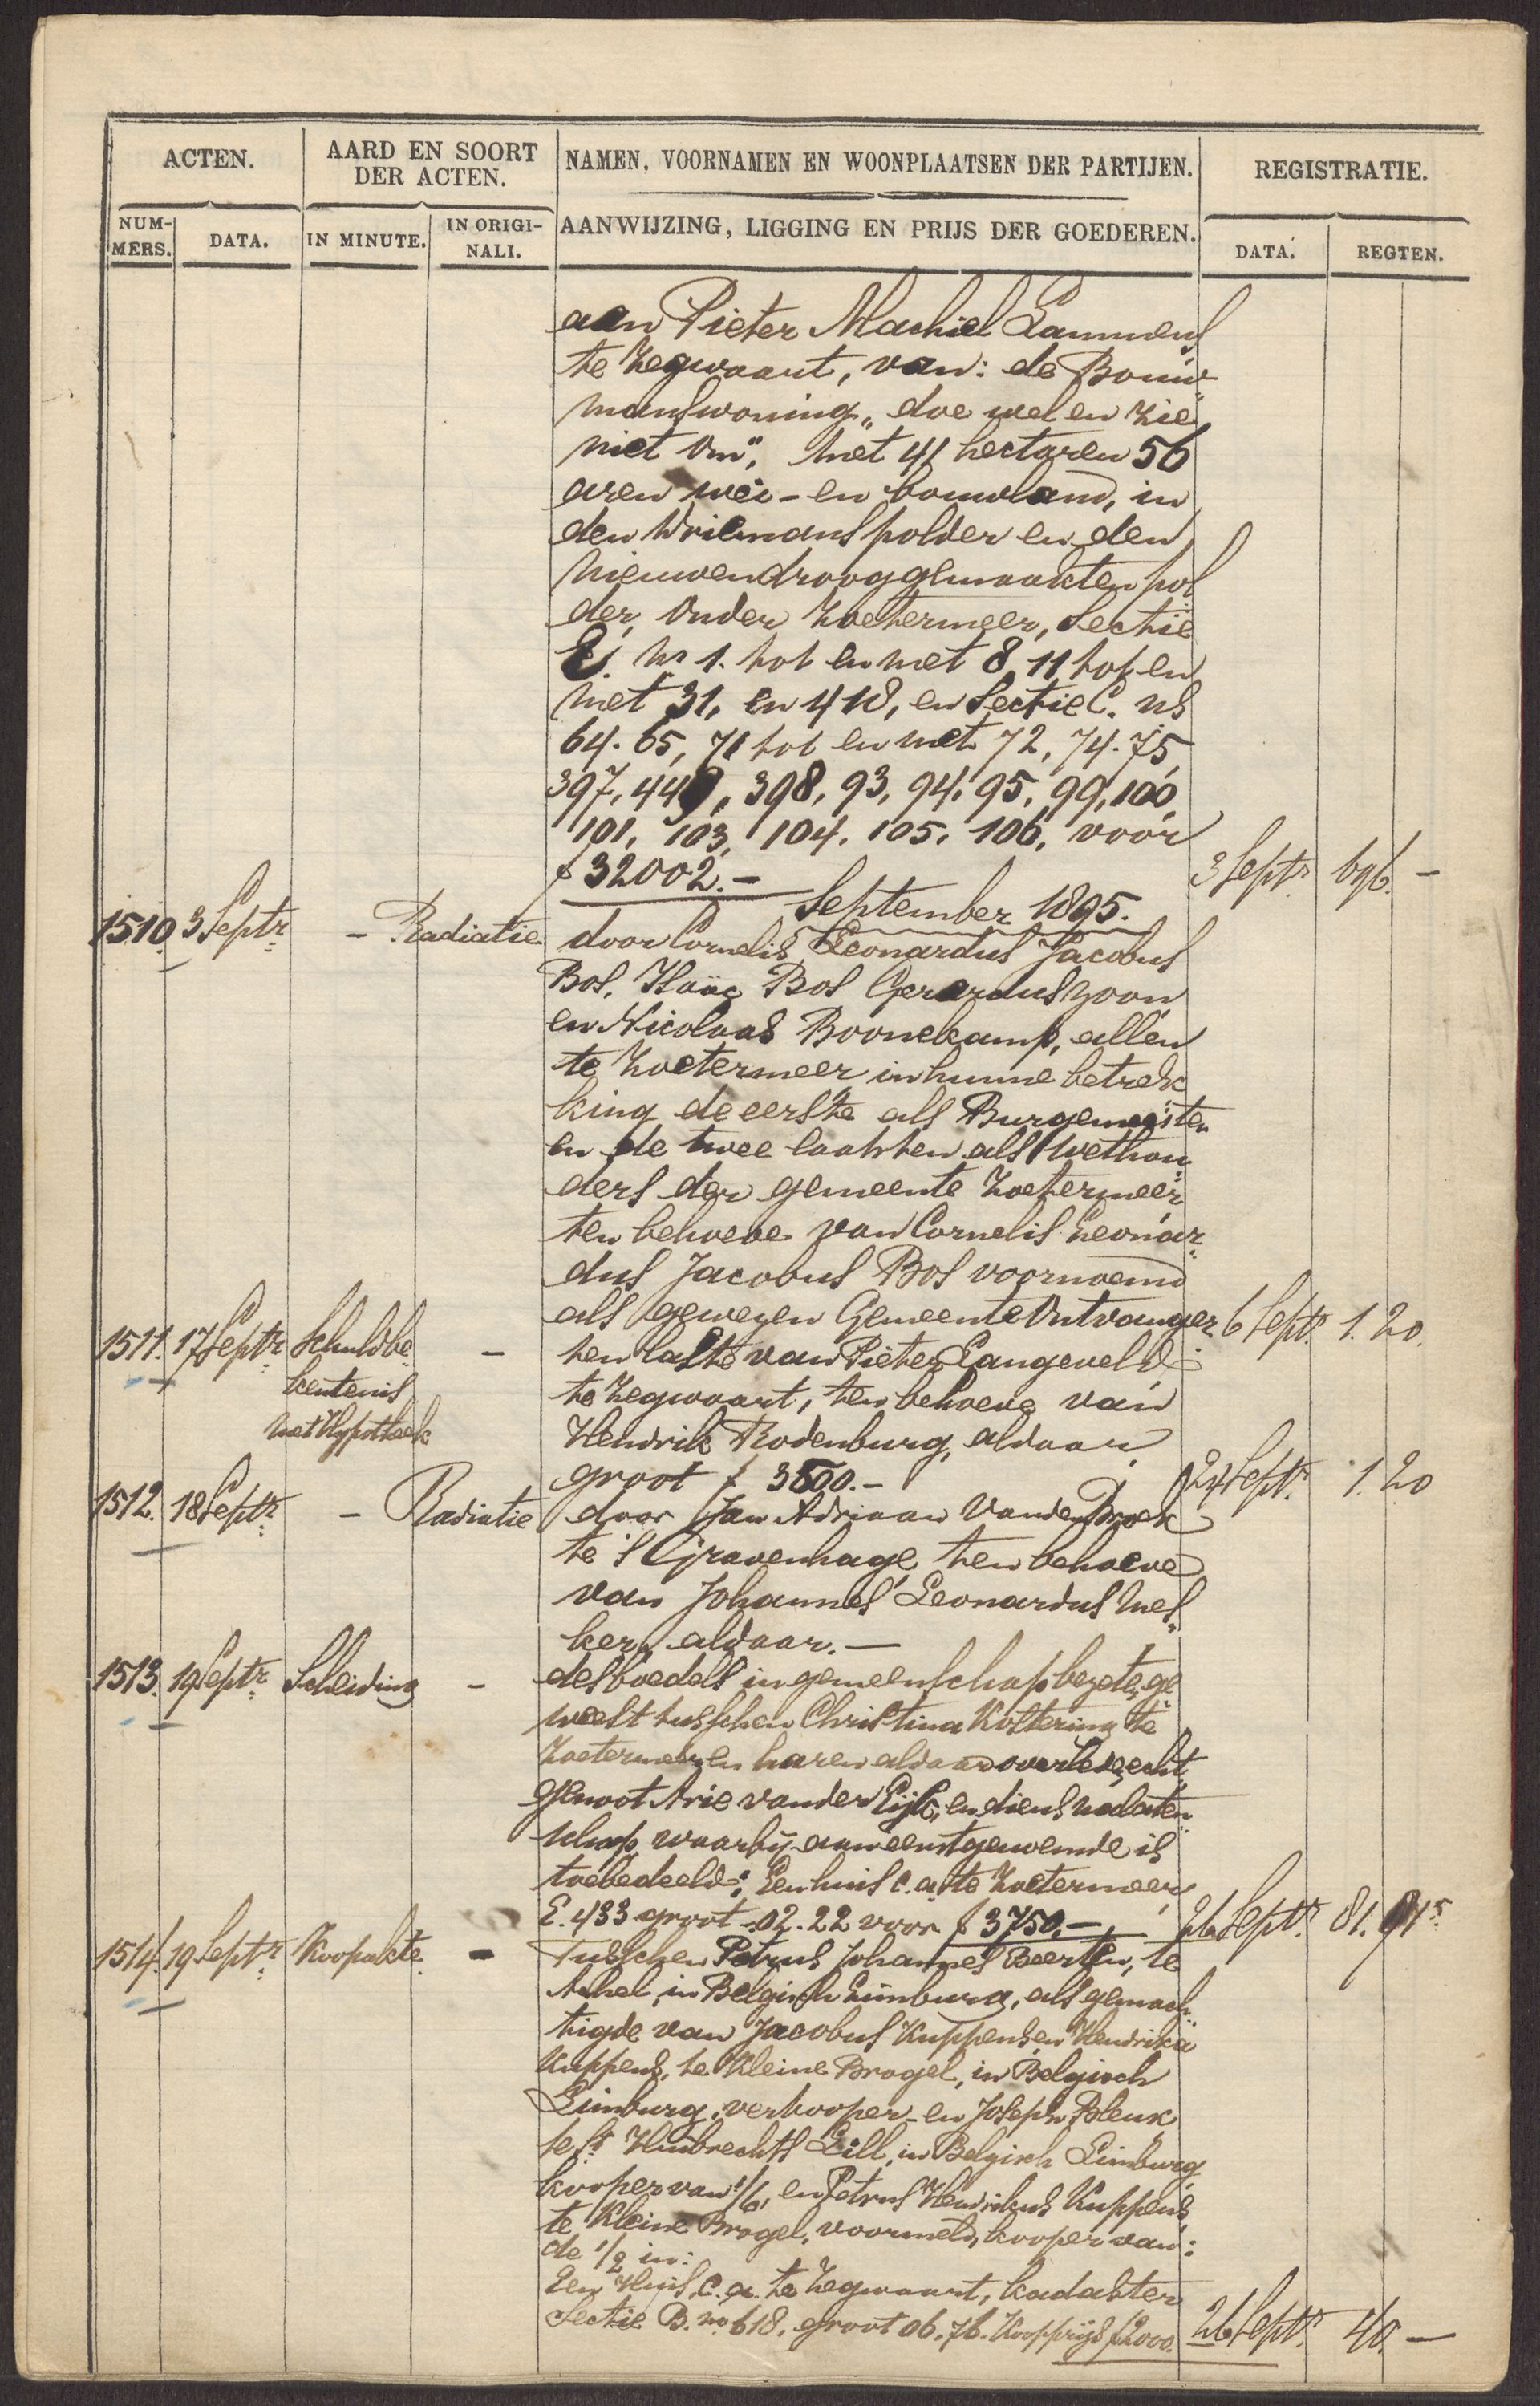 ACTEN.
AARD EN SOORT
DER ACTEN.
NAMEN, VOORNAMEN EN WOONPLAATSEN DER PARTIJEN.
REGISTRATIE.
NUM-
MERS.
DATA.
IN MINUTE.
IN ORIGI-
NALI.
AANWIJZING, LIGGING EN PRIJS DER GOEDEREN.
DATA.
REGTEN.
aan Pieter Machiel Lammens
te Zegwaart, van: de Bouw„
manswoning „doe wel en zie
niet om", met 41 hectaren 56
aren wei- en bouwland, in
den Driemanspolder en den
nieuwen drooggemaakten pol
der, onder Zoetermeer, Sectie
E. no 1. tot en met 8, 11 tot en
met 31, en 418, en Sectie C. ns
64. 65, 71 tot en met 72, 74. 75,
397, 449, 398, 93, 94, 95, 99, 100,
101, 103, 104, 105, 106, voor
f 32002.- 3 Septr 696. -
September 1895.
1510 3 Septr - Radiatie door Cornelis Leonardus Jacobus
Bos, Isaäc Bos Gerarduszoon
en Nicolaas Boonekamp, allen
te Zoetermeer in hunne betrek
king de eerste als Burgemeester
en de twee laatsten als Wethou„
ders der gemeente Zoetermeer
ten behoeve van Cornelis Leonar„
dus Jacobus Bos voornoemd
als gewezen Gemeente Ontvanger 6 Septr 1. 20.
1511. 17 Septr Schuldbe - ten laste van Pieter Langeveld
kentenis te Zegwaart, ten behoeve van
met Hypotheek Hendrik Rodenburg, aldaar
groot f 3800.- 24 Septr 1. 20
1512. 18 Septr - Radiatie door Jan Adriaan van den Broek
te 's Gravenhage ten behoeve
van Johannes Leonardus Mes„
ker, aldaar. -
1513. 19 Septr Scheiding - des boedels in gemeenschap bezeten ge
weest tusschen Christina Kostering te
Zoetermeer en haren aldaar overleden echt
genoot Arie van der Eijk, en diens nalaten„
schap waarbij aan eerstgenoemde is
toebedeeld: Een huis c.a. te Zoetermeer,
E. 433 groot -.02.22 voor f 3750.- 26 Septr 81. 915
1514. 19 Septr Koopakte - Tusschen Petrus Johannes Beerten, te
Achel, in Belgisch Limburg, als gemach„
tigde van Jacobus Kuppens en Hendrika
Kuppens, te Kleine Brogel, in Belgisch
Limburg, verkooper en Joseph Bleux
te St Huibrechts Lill, in Belgisch Limburg,
kooper van 1/6, en Petrus Hendrikus Kuppens
te Kleine Brogel, voormeld, kooper van:
de 1/2 in:
Een Huis c.a. te Zegwaart, kadaster
Sectie B. no 618, groot 06.76. Koopprijs f 2000. 26 Septr 40. -